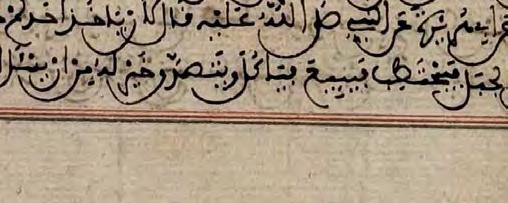 عن ابى هريرة عن النبي صلى الله عليه قال لأن ياخذ احدكم
لجبل فيحتطب فيبيع فياكل ويتصدق خير له من ان يسئل